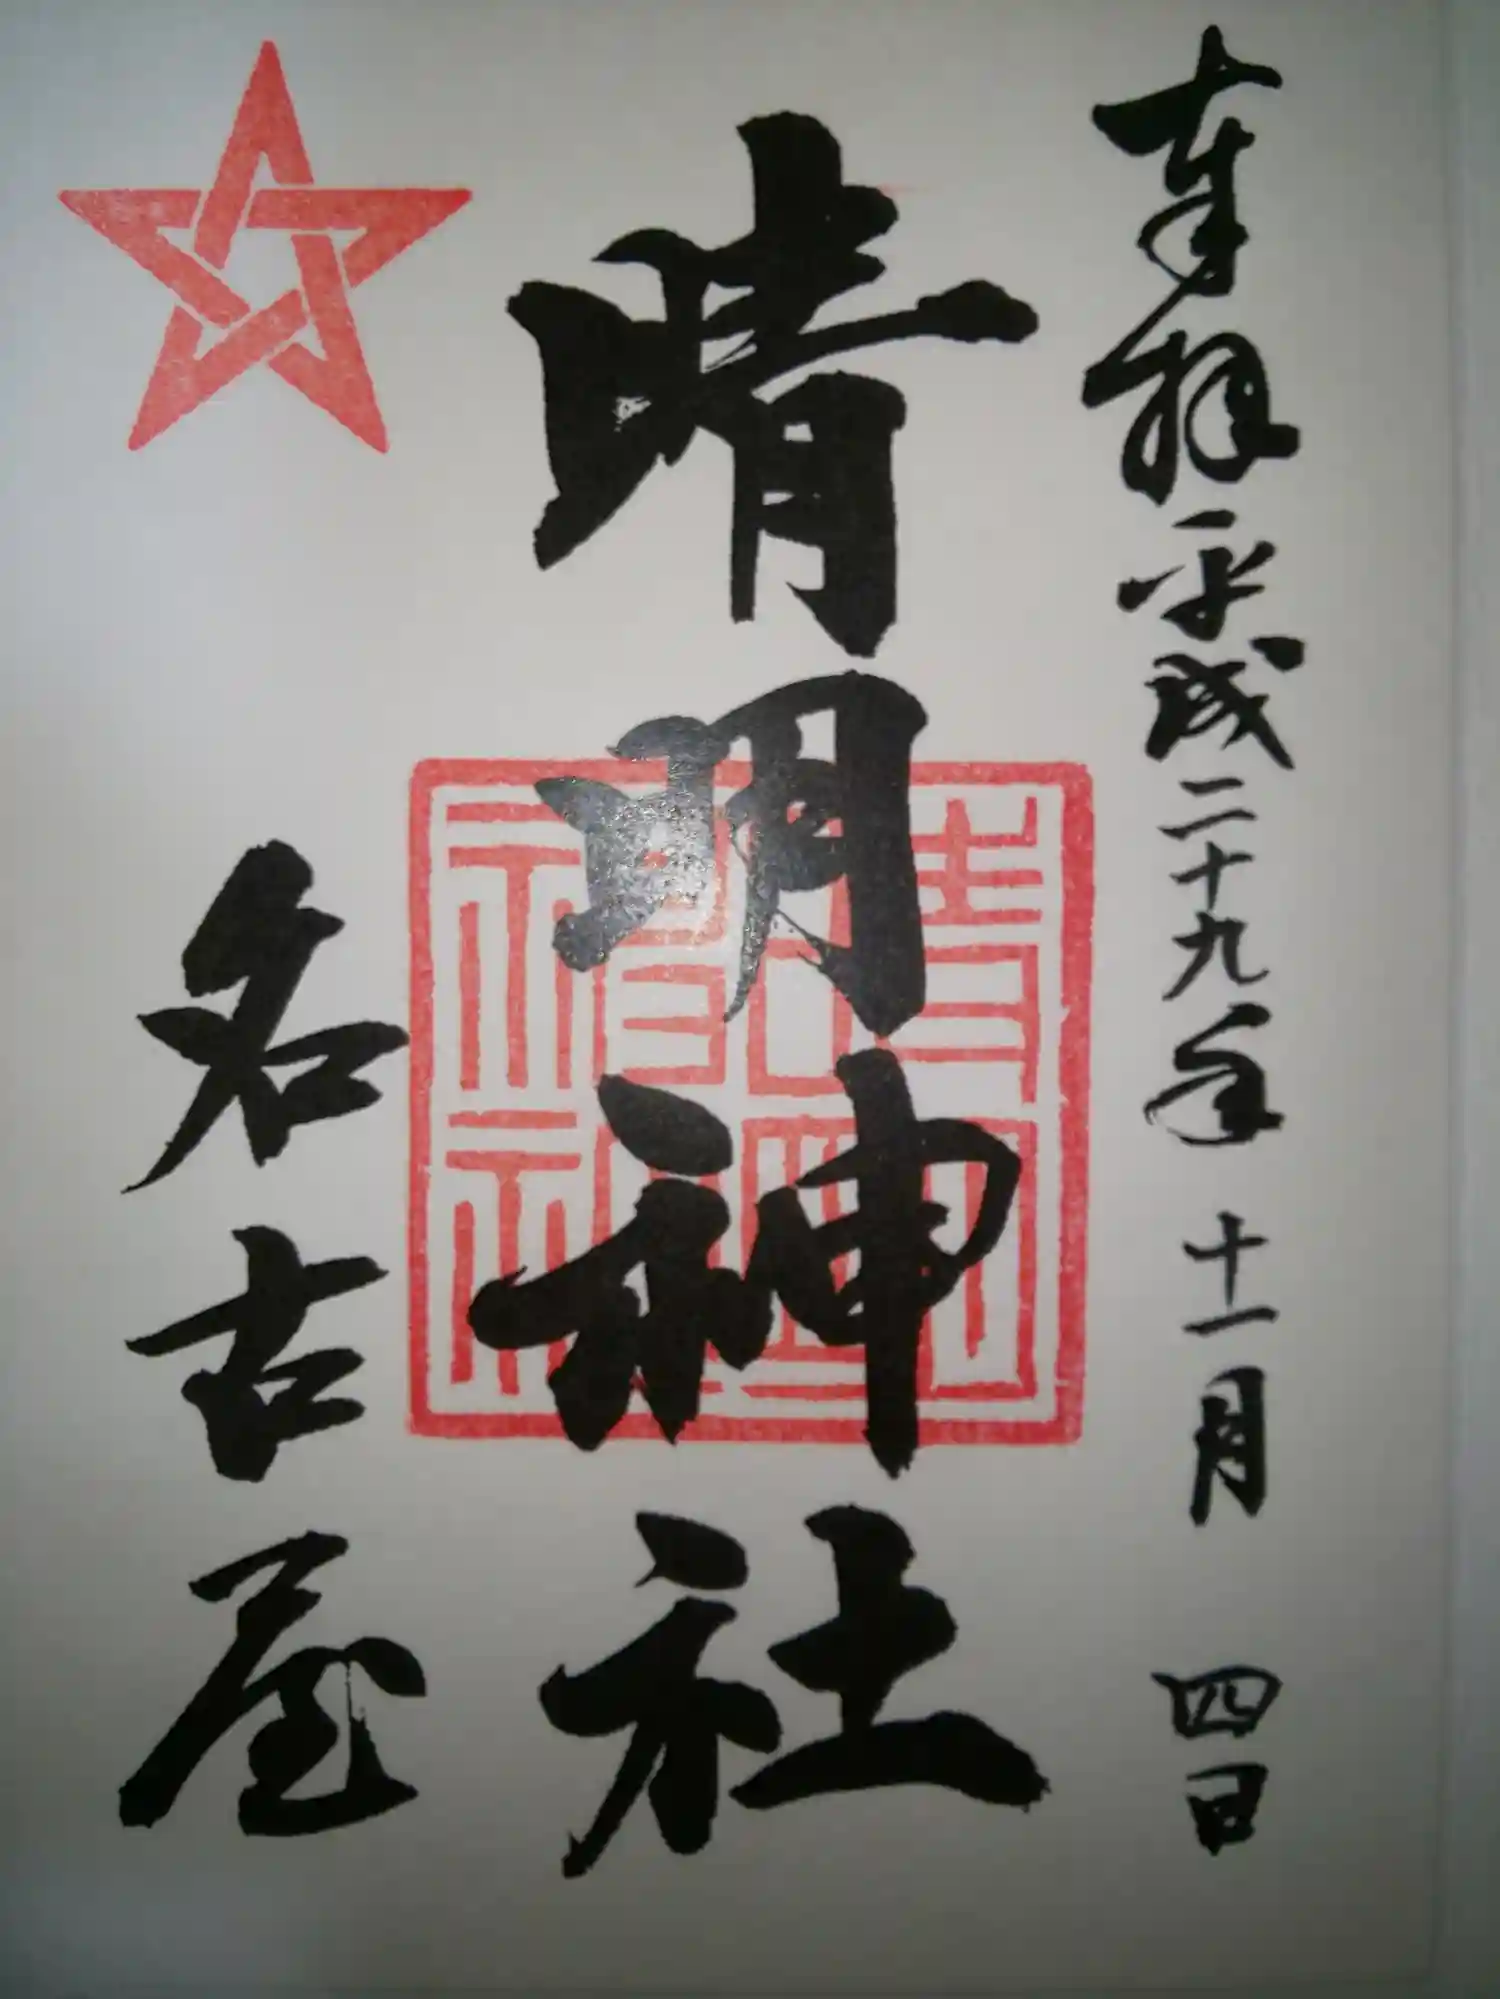 奉拝 平成二十九年 十一月 四日
晴明神社
晴明神社
名古屋